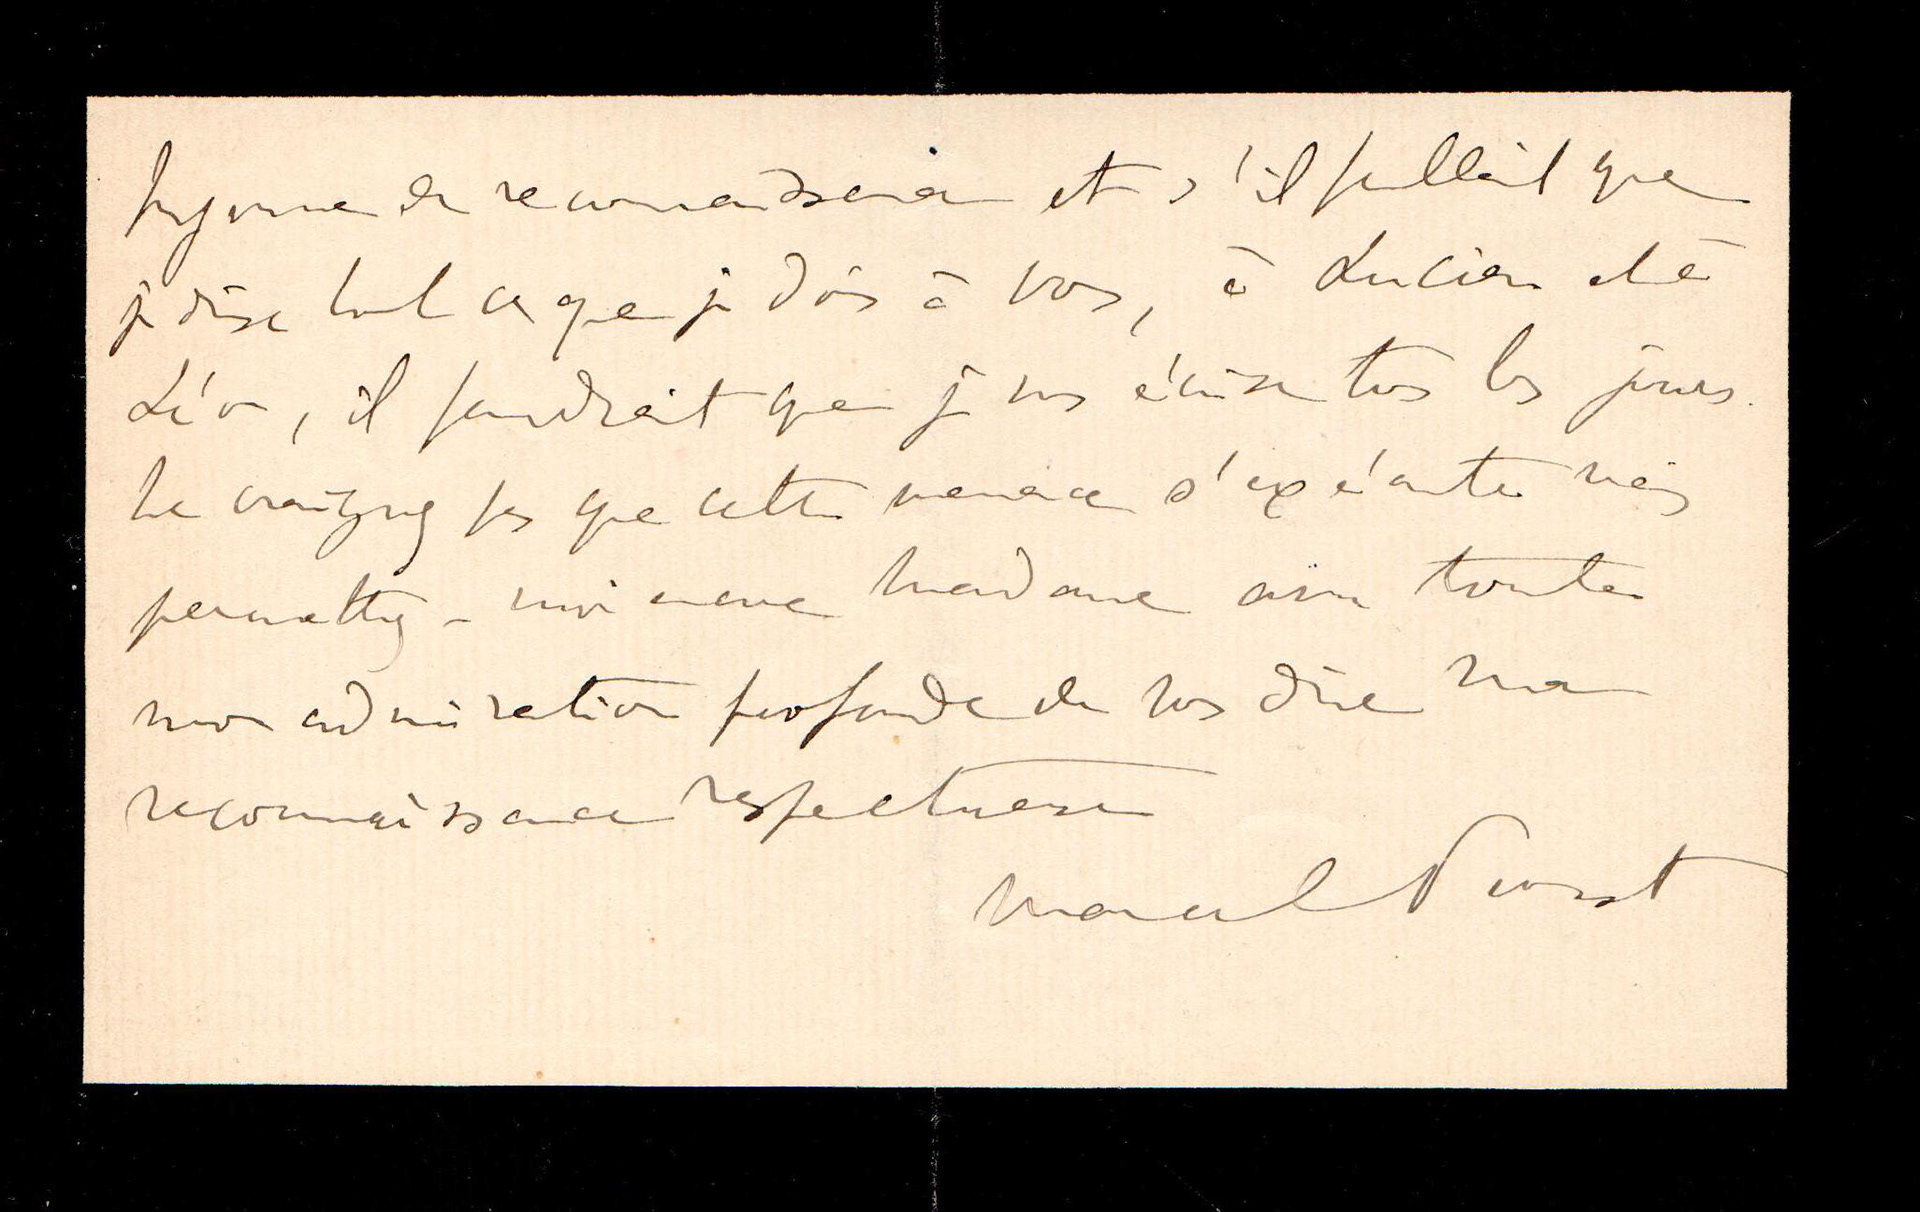 hymne de reconnaissance et s'il fallait que
je dise tout ce que je dois à vous, à Lucien et à
Léon, il faudrait que je vous écrive tous les jours.
Ne craignez pas que cette menace s'exécute mais
permettez-moi encore Madame avec toute
mon admiration profonde de vous dire ma
reconnaissance respectueuse
Marcel Proust